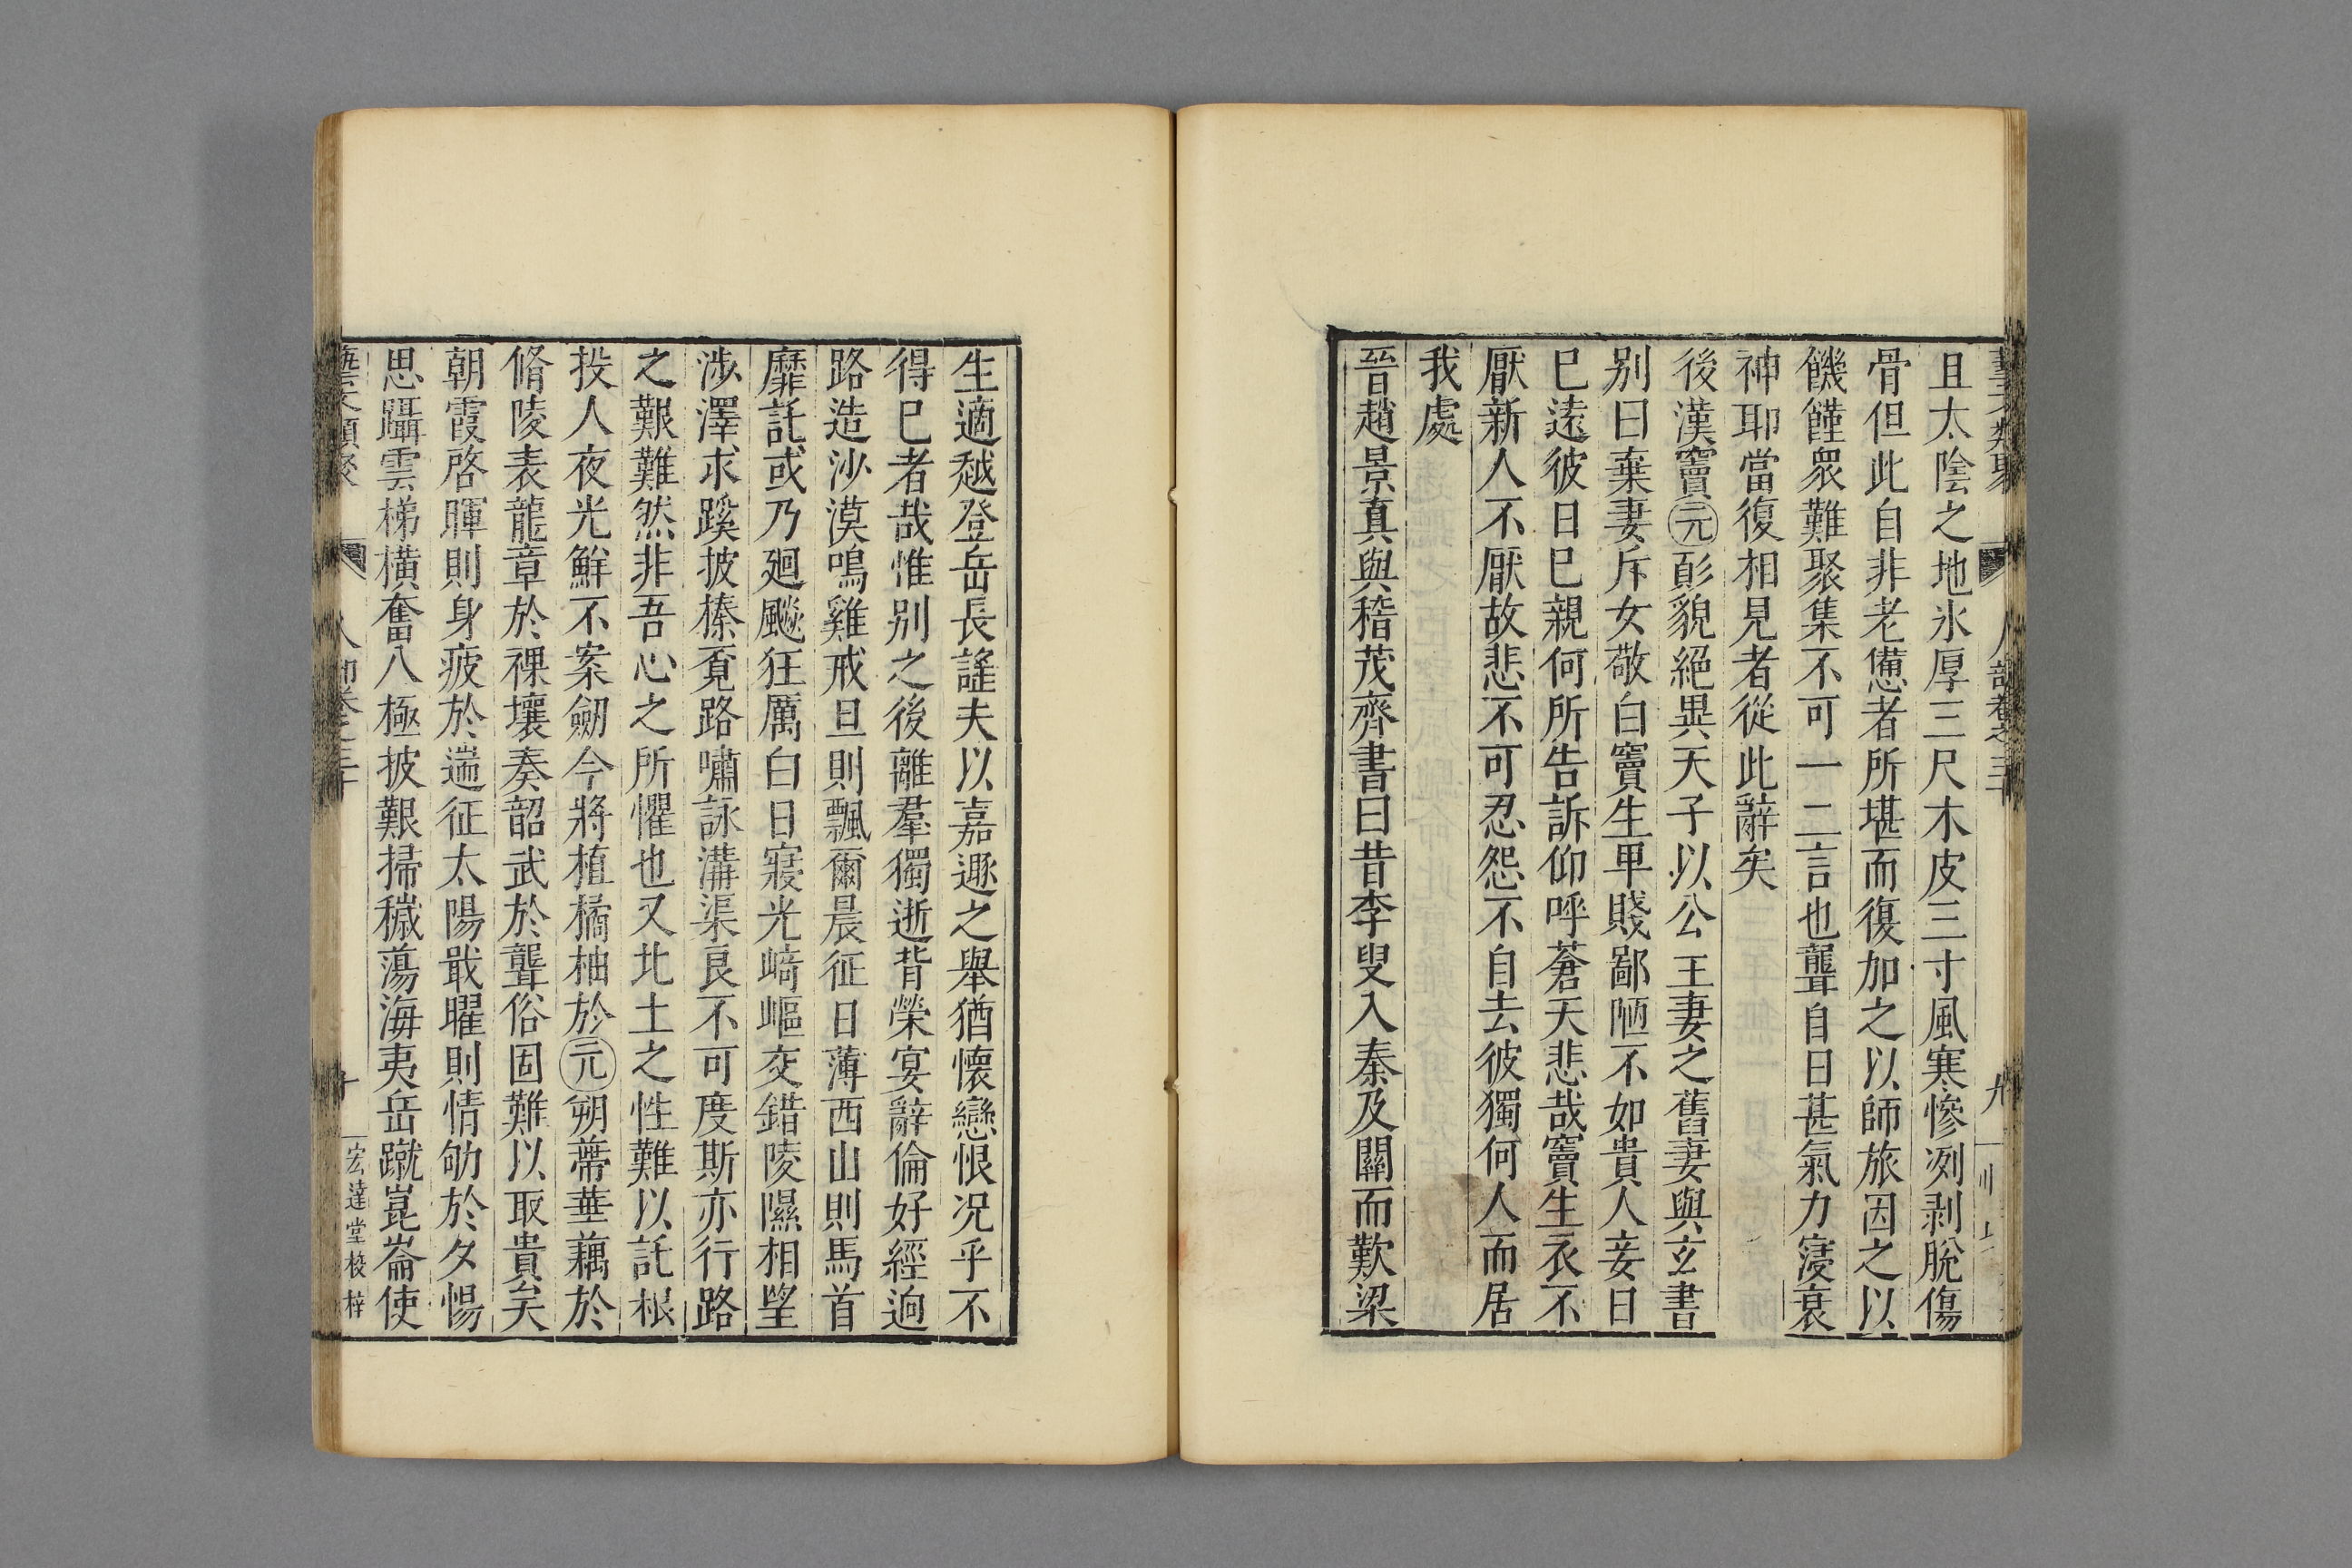 且太陰之地氷厚三尺木皮三寸風寒慘冽剥脫傷
骨但此自非老憊者所堪而復加之以師旅因之以
饑饉衆難聚集不可一二言也聾自日甚氣力寖衰
神耶當復相見者從此辭矣
後漢竇元彭貌絕異天子以公主妻之舊妻與玄書
别曰棄妻斥女敬白竇生卑賤鄙陋不如貴人妾日
已遠彼日已親何所告訴仰呼蒼天悲哉竇生衣不
厭新人不厭故悲不可忍怨不自去彼獨何人而居
我處
晉趙景真與稽茂齊書曰昔李叟入秦及關而歎梁
生適越登岳長謠夫以嘉遯之舉猶懷戀恨况乎不
得已者哉惟别之後離羣獨逝背榮宴辭倫好經逈
路造沙漠鳴雞戒旦則飄爾晨征日薄西山則馬首
靡託或乃廻飈狂厲白日寢光崎嶇交錯陵隰相望
涉澤求蹊披榛覔路嘯詠溝渠良不可度斯亦行路
之艱難然非吾心之所懼也又北土之性難以託根
投人夜光鮮不案劒今將植橘柚於元朔蔕華藕於
脩陵表龍章於裸壤奏韶武於聾俗固難以取貴矣
朝霞啓暉則身疲於遄征太陽戢曜則情劬於夕惕
思躡雲梯橫奮八極披艱掃穢蕩海夷岳蹴崑崙使
藝文類聚
人部卷之三十
十
宏達堂校梓